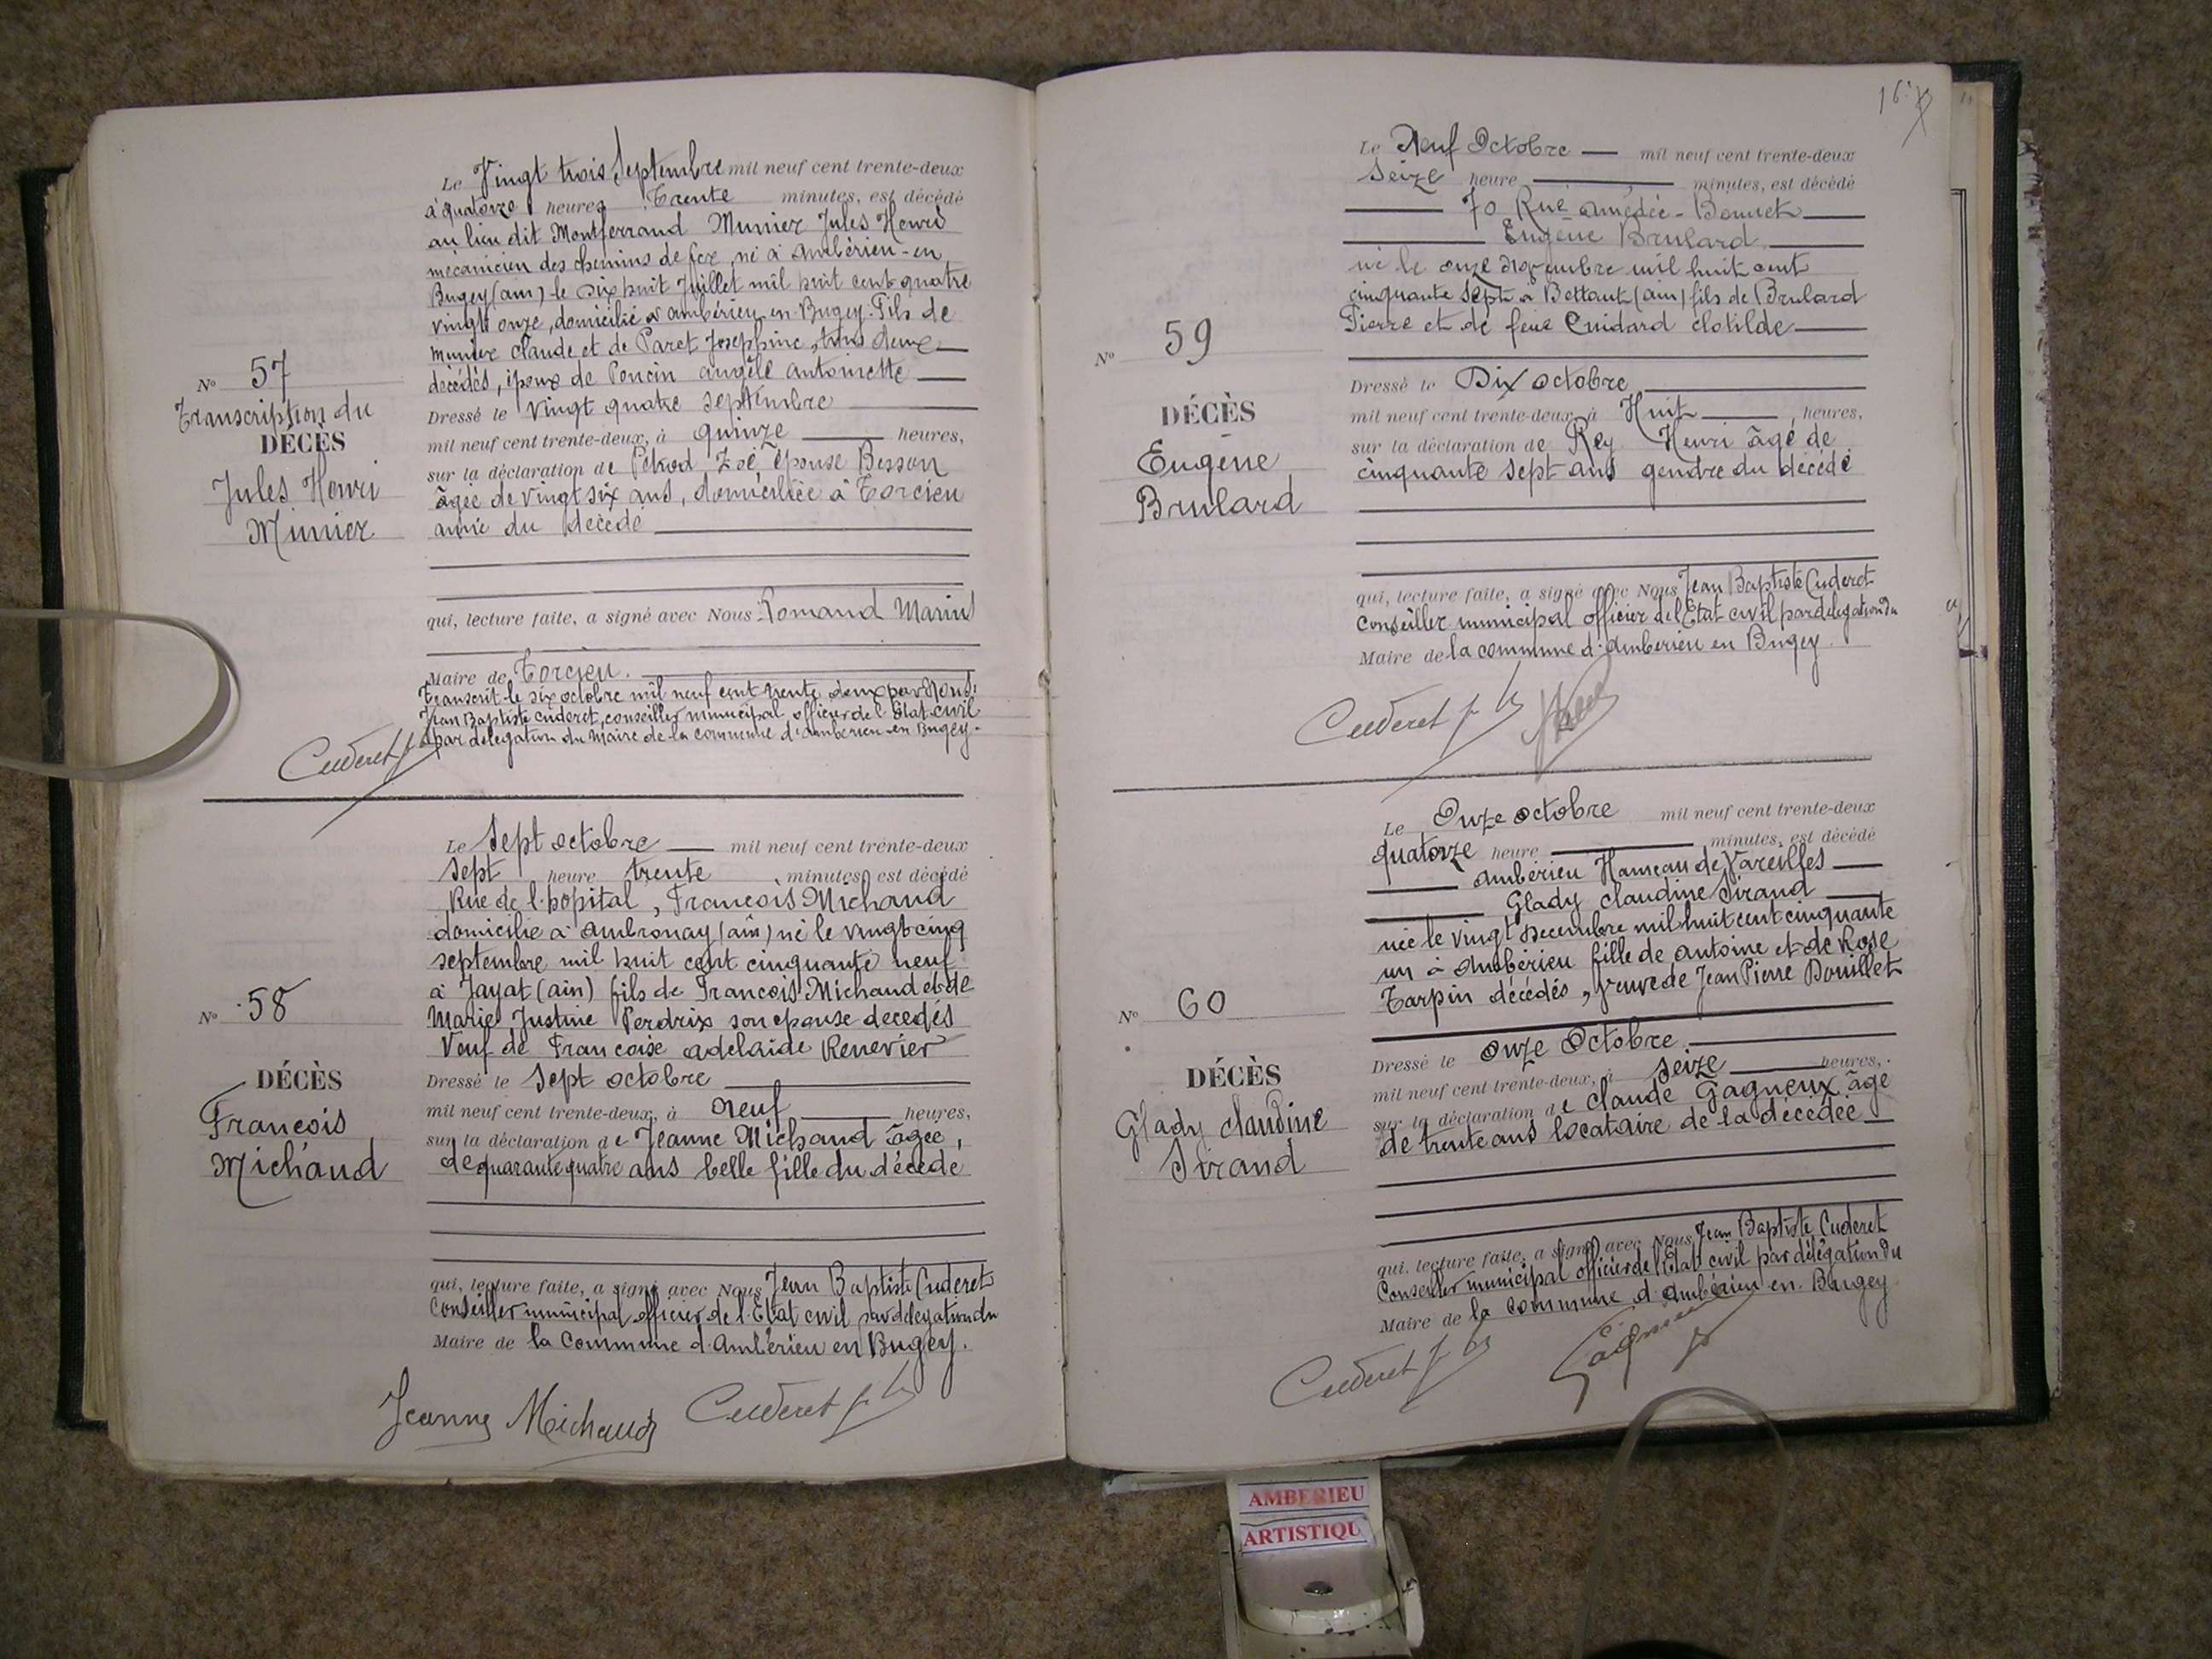 Le Vingt trois Septembre mil neuf cent trente-deux
à quatorze heures Trente minutes, est décédé
au lieu dit Montferrand Munier Jules Henri
mécanicien des chemins de fer, né à Ambérieu-en
Bugey (ain) le dix huit Juillet mil huit cent quatre
vingt onze, domicilié à ambérieu en Bugey. Fils de
munier Claude et de Paret Joséphine, tous deux
décédés, époux de Poncin angèle antoinette
Nº 57
Transcription du
DÉCÈS
Jules Henri
Munier
Dressé le vingt quatre septembre
mil neuf cent trente-deux, à quinze heures,
sur la déclaration de Zoé, épouse Besson
âgée de vingt six ans, domiciliée à Torcieu
amie du décédé
qui, lecture faite, a signé avec Nous Romand Marius
Maire de Torcieu.
Transcrit le six octobre mil neuf cent trente deux par Nous
Jean Baptiste Cuderet, conseiller municipal, officier de l'Etat civil
par délégation du Maire de la commune d'ambérieu en Bugey.
Cuderet
Le Sept octobre mil neuf cent trente-deux
Sept heure trente minutes, est décédé
Rue de l'hopital, François Michaud
domicilié à ambronay (ain) né le vingt cinq
septembre mil huit cent cinquante neuf
à Jayat (ain) fils de François Michaud et de
Marie Justine Perdrix son epouse decedés
Veuf de Francoise adelaide Renevier
Nº 58
DÉCÈS
François
Michaud
Dressé le Sept octobre
mil neuf cent trente-deux, à neuf heures,
sur la déclaration de Jeanne Michaud âgée,
de quarante quatre ans belle fille du décédé
qui, lecture faite, a signé avec Nous Jean Baptiste Cuderet
Conseiller municipal officier de l'Etat civil par délégation du
Maire de la Commune d'ambérieu en Bugey.
Jeanne Michaud Cuderet
Le Neuf Octobre mil neuf cent trente-deux
Seize heure minutes, est décédé
70 Rue amédée-Bonnet
Eugène Brulard
né le onze novembre mil huit cent
cinquante sept à Bettant (ain) fils de Brulard
Pierre et de feue Cuidard Clotilde
Nº 59
DÉCÈS
Eugène
Brulard
Dressé le Dix octobre
mil neuf cent trente-deux, à Huit heures,
sur la déclaration de Rey Henri âgé de
cinquante sept ans gendre du décédé
qui, lecture faite, a signé avec Nous Jean Baptiste Cuderet
Conseiller municipal officier de l'Etat civil par délégation du
Maire de la commune d'ambérieu en Bugey.
Cuderet
Le Onze octobre mil neuf cent trente-deux
quatorze heure minutes, est décédé
ambérieu Hameau de Vareilles
Glady Claudine Sirand
née le vingt Decembre mil huit cent cinquante
un à Ambérieu fille de antoine et de Rose
Tarpin décédés, veuve de Jean Pierre Douillet
Nº 60
DÉCÈS
Glady claudine
Sirand
Dressé le onze Octobre
mil neuf cent trente-deux, à seize heures,
sur la déclaration de Claude Gagneux âgé
de trente ans locataire de la décédée
qui, lecture faite, a signé avec Nous Jean Baptiste Cuderet
Conseiller municipal officier de l'Etat civil par délégation du
Maire de la commune d'ambérieu en Bugey
Cuderet
AMBERIEU
ARTISTIQU